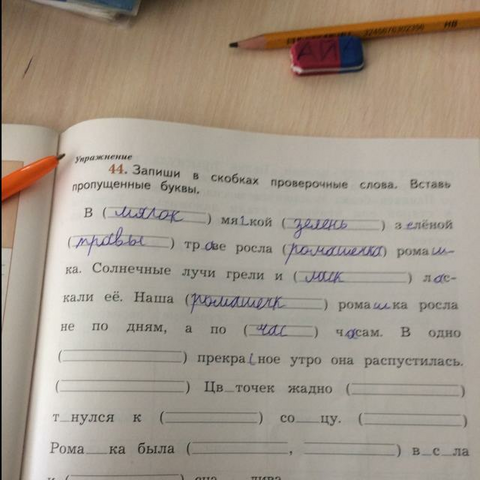 3245678902396 HB
Упражнение
44. Запиши в скобках проверочные слова. Вставь
пропущенные буквы.
В (мягок) мягкой (зелень) зелёной
(травы) траве росла (ромашечка) ромаш-
ка. Солнечные лучи грели и (ласк) лас-
кали её. Наша (ромашек) ромашка росла
не по дням, а по (час) часам. В одно
(____) прекрасное утро она распустилась.
(____) Цв_точек жадно (____)
т_нулся к (____) со__цу. (____)
Рома__ка была (____, ____) в_с_ла